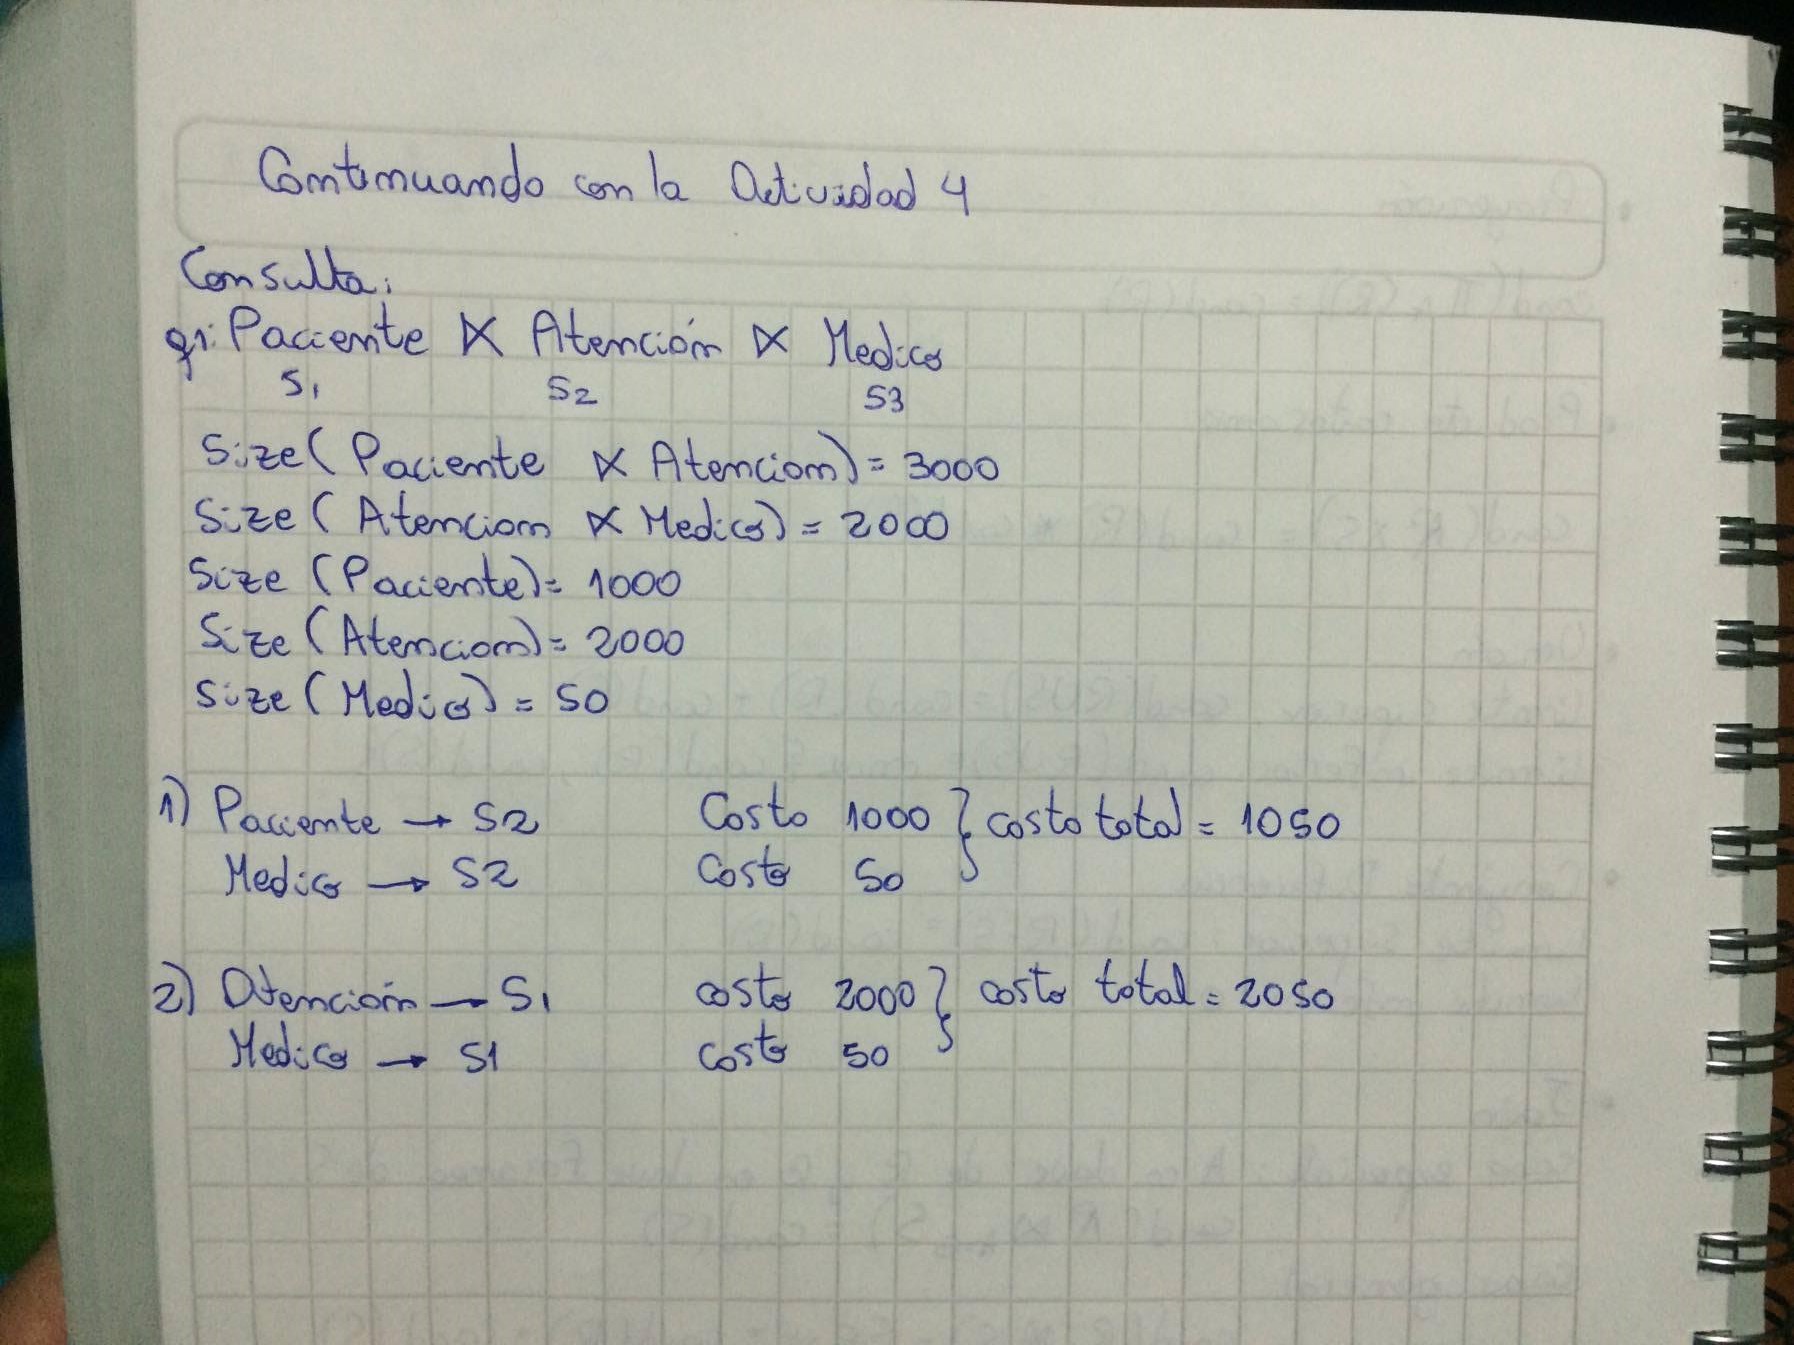 Continuando con la Actividad 4
Consulta:
q1: Paciente ⋉ Atención ⋉ Medico
S1 S2 S3
Size (Paciente ⋉ Atencion) = 3000
Size (Atencion ⋉ Medico) = 2000
Size (Paciente) = 1000
Size (Atencion) = 2000
Size (Medico) = 50
1) Paciente → S2 Costo 1000 } costo total = 1050
Medico → S2 Costo 50
2) Atención → S1 costo 2000 } costo total = 2050
Medico → S1 costo 50